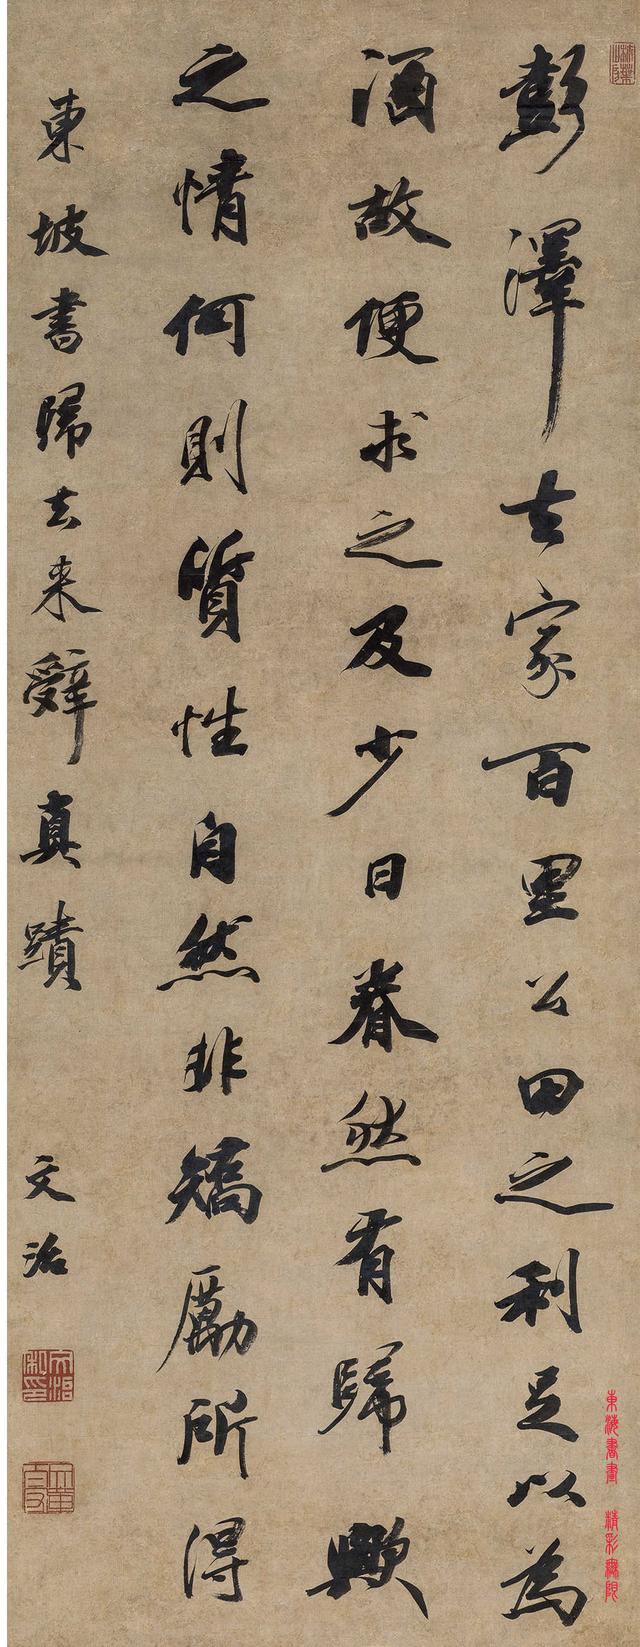 彭澤去家百里公田之利足以為
酒故便求之及少日眷然有歸歟
之情何則質性自然非矯勵所得
東坡書歸去来辭真蹟
文治
東海書畫 精彩無限